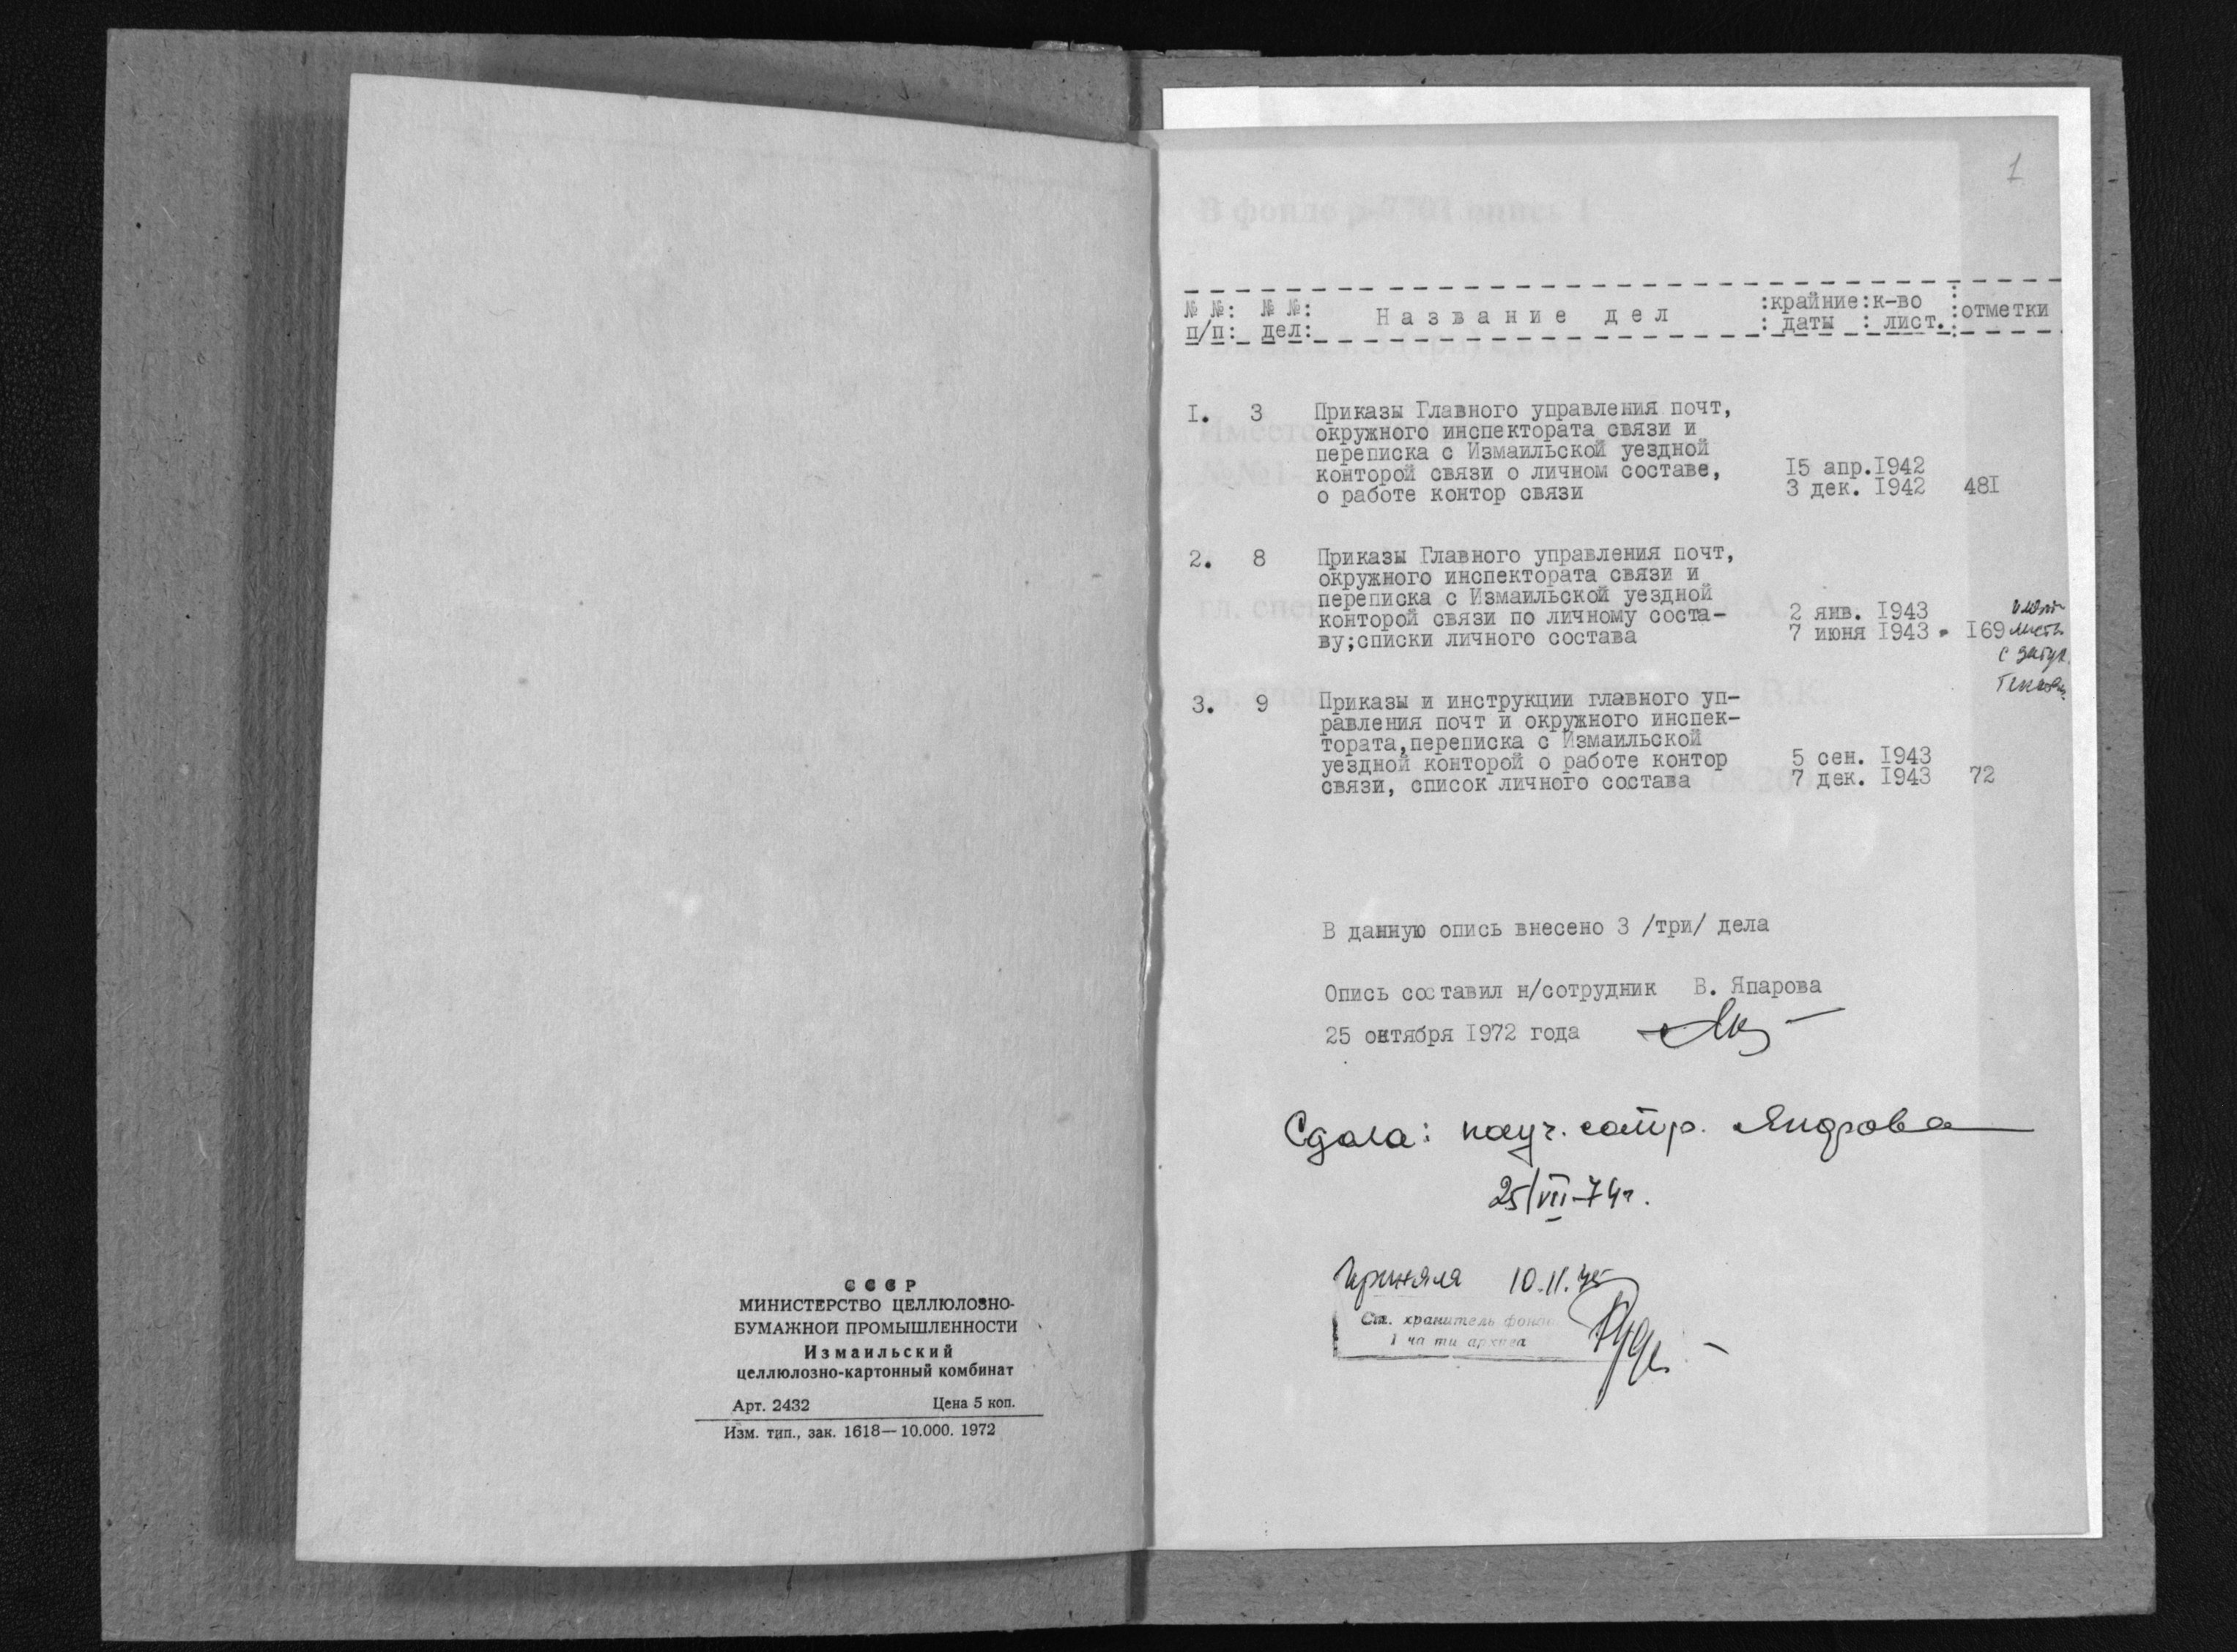 СССР
МИНИСТЕРСТВО ЦЕЛЛЮЛОЗНО-
БУМАЖНОЙ ПРОМЫШЛЕННОСТИ
Измаильский
целлюлозно-картонный комбинат
Арт. 2432 Цена 5 коп.
Изм. тип., зак. 1618—10.000. 1972
1
В фонде р-7701 опись 1
№ №: № №: Название дел :крайние:к-во :отметки
п/п: дел: : даты : лист.:
I. 3 Приказы Главного управления почт,
окружного инспектората связи и
переписка с Измаильской уездной
конторой связи о личном составе, 15 апр.1942
о работе контор связи 3 дек. 1942 481
2. 8 Приказы Главного управления почт,
окружного инспектората связи и
переписка с Измаильской уездной
конторой связи по личному соста- 2 янв. 1943
ву;списки личного состава 7 июня 1943 169 листы
с затух.
текстом
3. 9 Приказы и инструкции главного уп-
равления почт и окружного инспек-
тората,переписка с Измаильской
уездной конторой о работе контор 5 сен. 1943
связи, список личного состава 7 дек. 1943 72
В данную опись внесено 3 /три/ дела
Опись составил н/сотрудник В. Япарова
25 октября 1972 года
Сдала: науч. сотр.
25/VII-74г.
Приняла 10.11.75
Ст. хранитель фондов
1 части архива